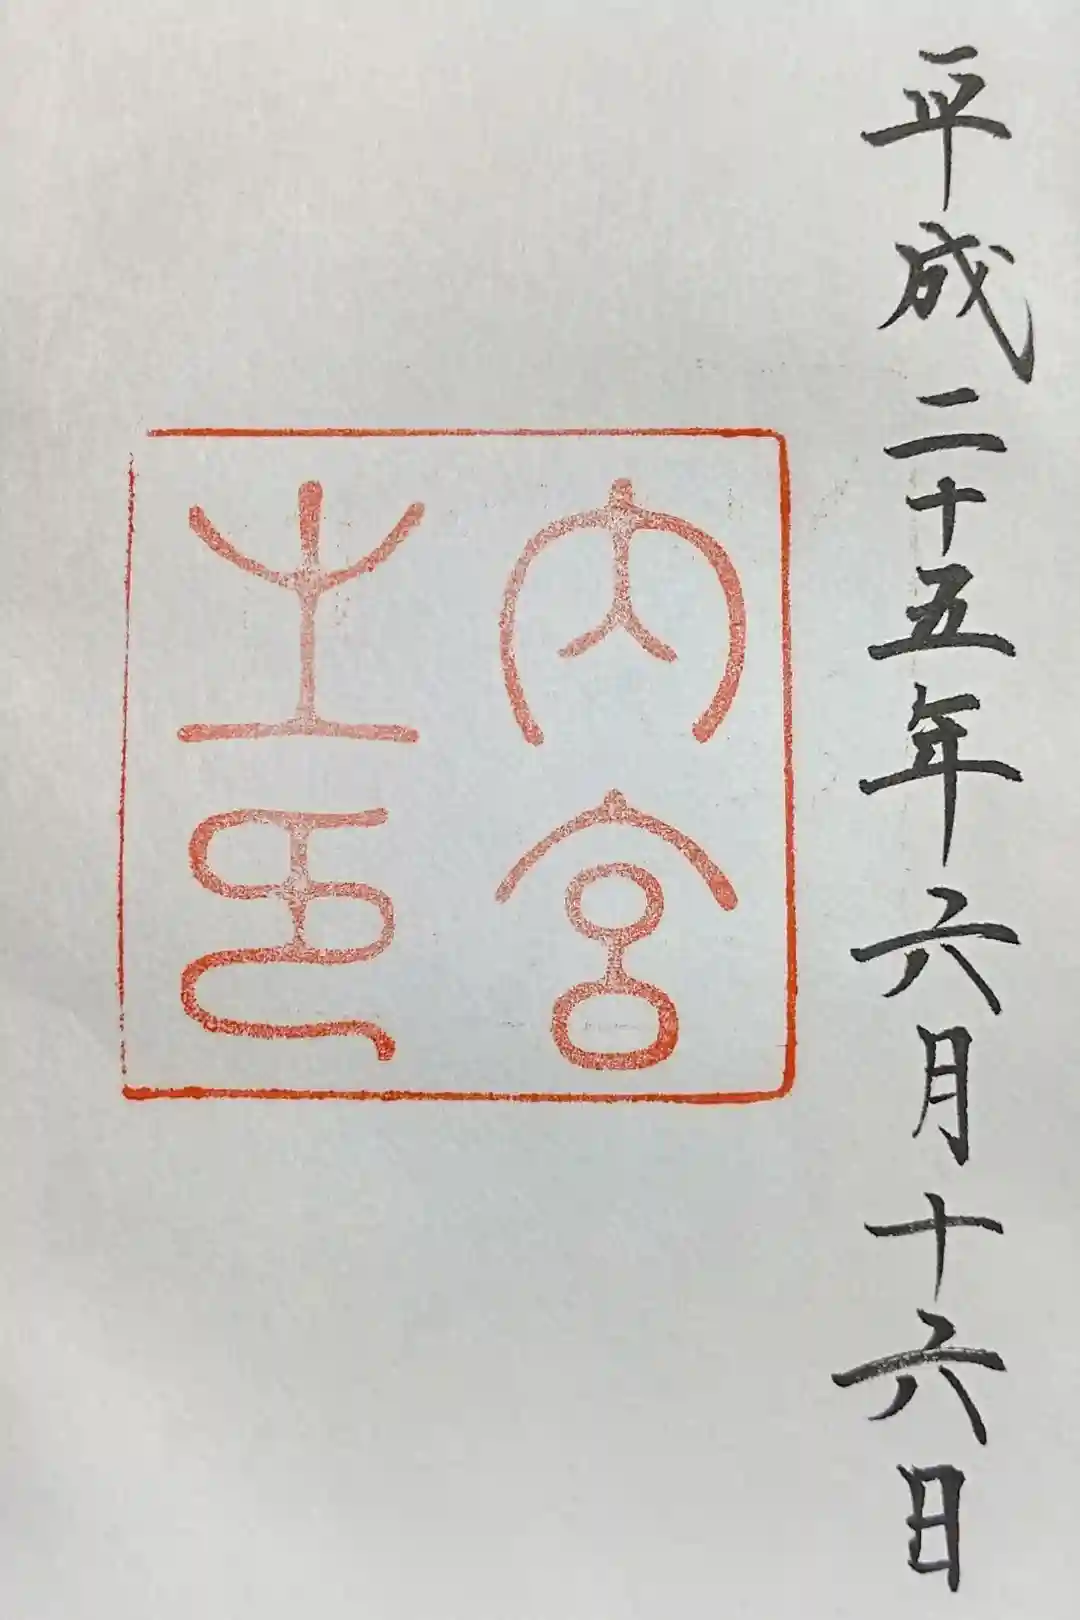 平成二十五年六月十六日
内宮
之印